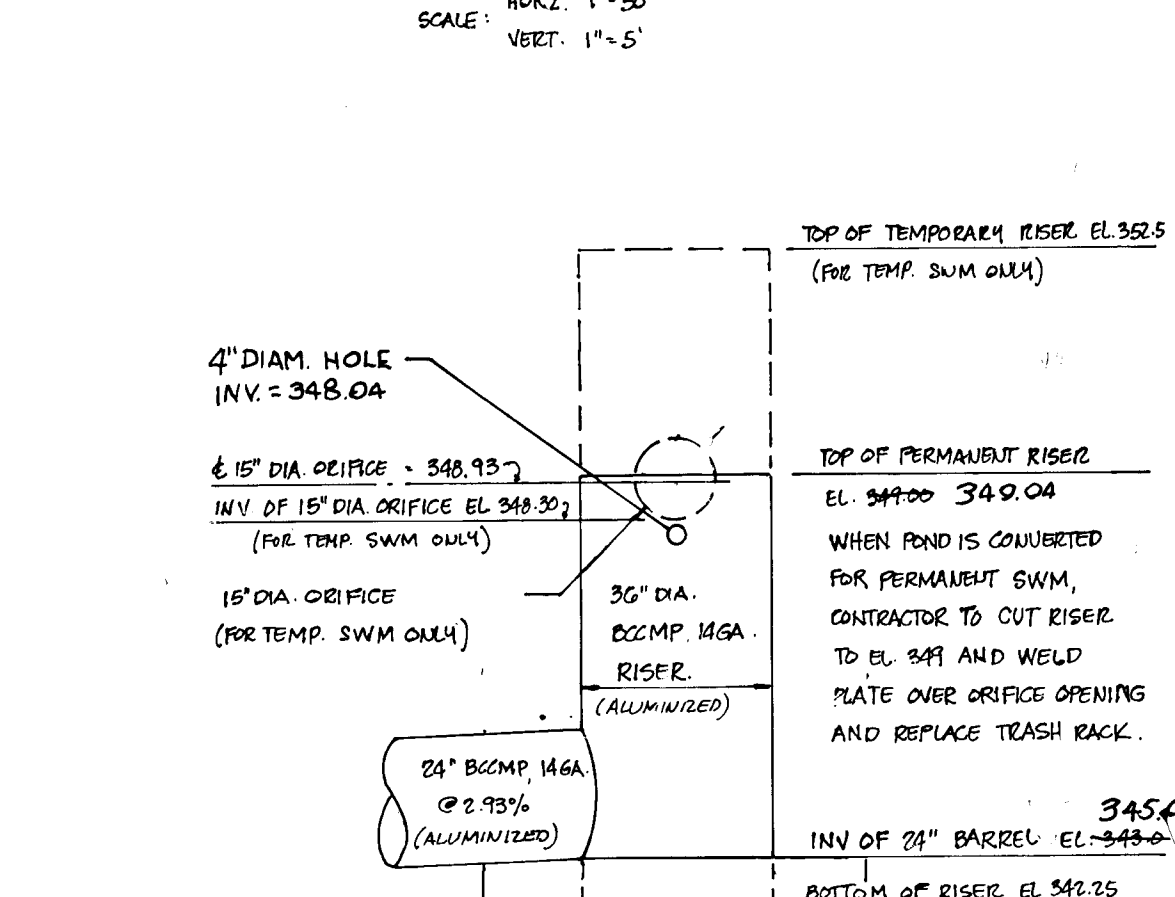 SCALE: HORZ. 1"=50'
VERT. 1"=5'
TOP OF TEMPORARY RISER EL.352.5
(FOR TEMP. SWM ONLY)
4" DIAM. HOLE
INV. = 348.04
℄ 15" DIA. ORIFICE = 348.93
INV OF 15" DIA. ORIFICE EL 348.30
(FOR TEMP. SWM ONLY)
15" DIA. ORIFICE
(FOR TEMP. SWM ONLY)
TOP OF PERMANENT RISER
EL. 349.00 349.04
WHEN POND IS CONVERTED
FOR PERMANENT SWM,
CONTRACTOR TO CUT RISER
TO EL. 349 AND WELD
PLATE OVER ORIFICE OPENING
AND REPLACE TRASH RACK.
36" DIA.
BCCMP, 14GA.
RISER.
(ALUMINIZED)
24" BCCMP, 14GA.
@ 2.93%
(ALUMINIZED)
345.
INV OF 24" BARREL EL. 343.0
BOTTOM OF RISER EL 342.25